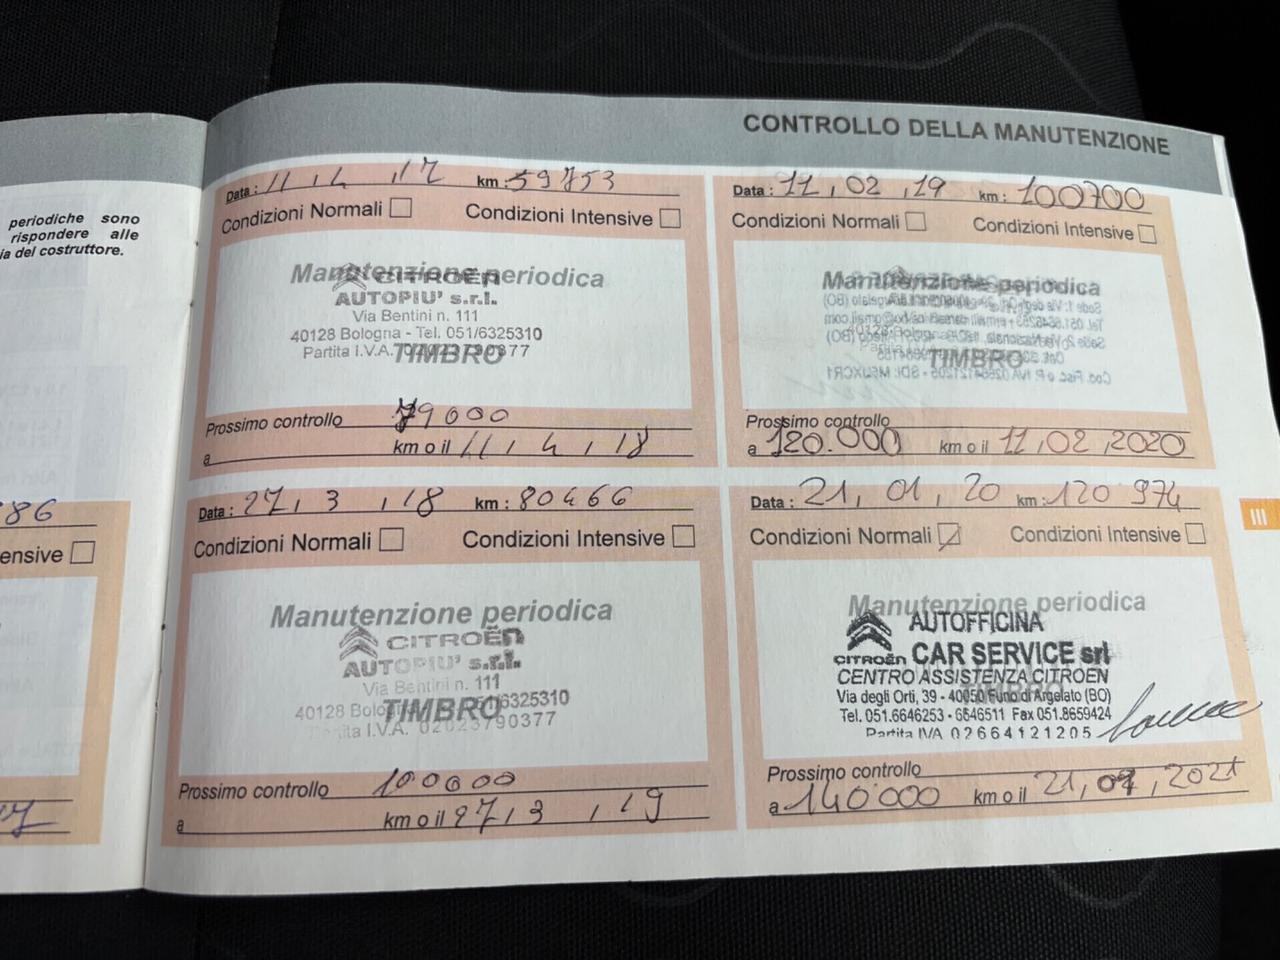 CONTROLLO DELLA MANUTENZIONE
periodiche sono
rispondere alle
ia del costruttore.
86
ensive
Data : 11 , 4 , 17 km : 59753
Condizioni Normali Condizioni Intensive
Manutenzione periodica
CITROËN
AUTOPIU' s.r.l.
Via Bentini n. 111
40128 Bologna - Tel. 051/6325310
Partita I.V.A. 02023790377
TIMBRO
Prossimo controllo 79000
a km o il 11 , 4 , 18
Data : 27 , 3 , 18 km : 80466
Condizioni Normali Condizioni Intensive
Manutenzione periodica
CITROËN
AUTOPIU' s.r.l.
Via Bentini n. 111
40128 Bologna 051/6325310
TIMBRO
Partita I.V.A. 02023790377
Prossimo controllo 100000
a km o il 27 , 3 , 19
Data : 11 , 02 , 19 km : 100700
Condizioni Normali Condizioni Intensive
Manutenzione periodica
40128 Bologna
TIMBRO
Prossimo controllo
a 120.000 km o il 11 , 02 , 2020
Data : 21 , 01 , 20 km : 120 974
Condizioni Normali Condizioni Intensive
Manutenzione periodica
AUTOFFICINA
CITROËN CAR SERVICE srl
CENTRO ASSISTENZA CITROËN
TIMBRO
Via degli Orti, 39 - 40050 Funo di Argelato (BO)
Tel. 051.6646253 - 6646511 Fax 051.8659424
Partita IVA 02664121205
Prossimo controllo
a 140000 km o il 21 , 01 , 2021
III